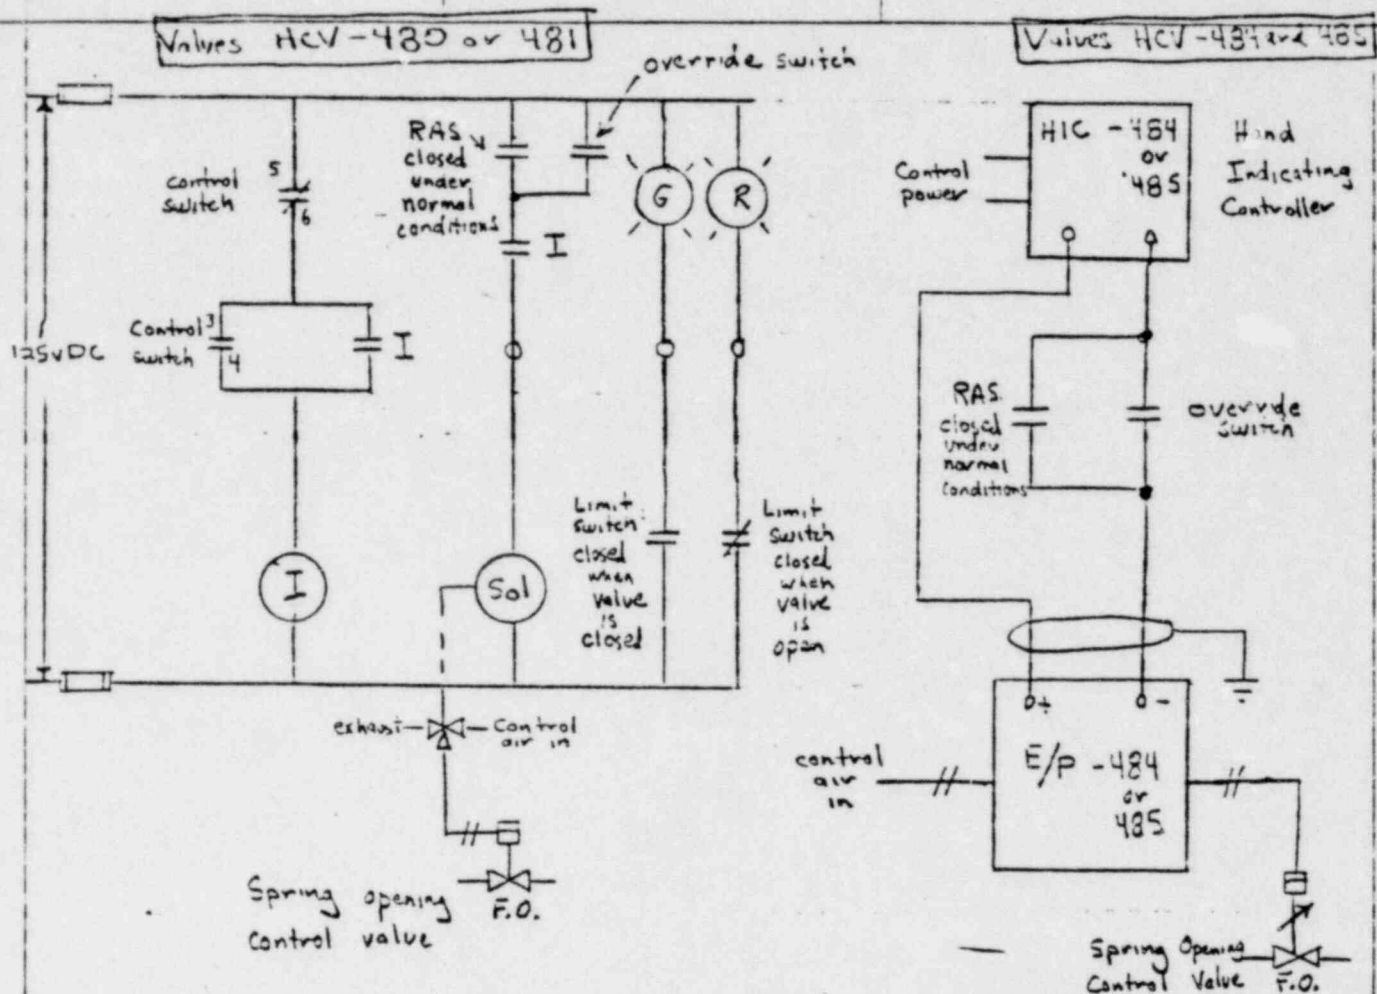 Valves HCV-480 or 481
Valves HCV-484 and 485
override switch
RAS
closed
under
normal
conditions
Control
switch
5
6
G
R
I
Control
switch
3
4
I
125VDC
I
Sol
Limit
switch
closed
when
valve
is
closed
Limit
switch
closed
when
valve
is
open
exhaust
Control
air in
Spring opening
Control valve
F.O.
HIC-484
or
485
Hand
Indicating
Controller
Control
power
RAS
closed
under
normal
conditions
override
switch
+
-
control
air
in
E/P-484
or
485
Spring Opening
Control Valve
F.O.